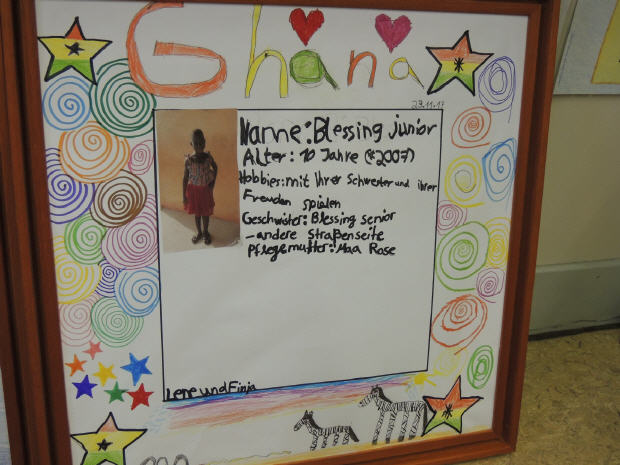 Ghana
29.11.17
Name: Blessing junior
Alter: 10 Jahre (*2007)
Hobbies: mit ihrer Schwester und ihrer
Freuden spielen
Geschwister: Blessing senior
- andere Straßenseite
Pflegemutter: Maa Rose
Lene und Finja